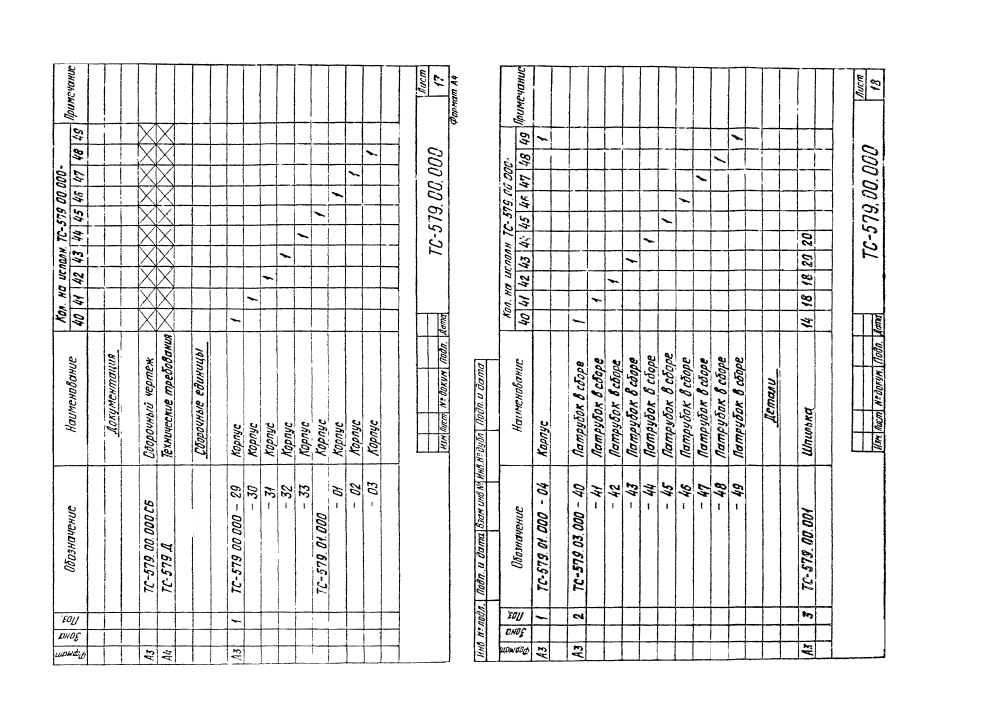 Формат Зона Поз. Обозначение Наименование Кол. на исполн. ТС-579.00.000- Примечание
40 41 42 43 44 45 46 47 48 49
Документация
А3 ТС-579.00.000 СБ Сборочный чертеж
А4 ТС-579 Д Технические требования
Сборочные единицы
А3 1 ТС-579.00.000 - 29 Корпус 1
- 30 Корпус 1
- 31 Корпус 1
- 32 Корпус 1
- 33 Корпус 1
ТС-579.01.000 Корпус 1
- 01 Корпус 1
- 02 Корпус 1
- 03 Корпус 1
Изм Лист № докум. Подп. Дата
ТС-579.00.000
Лист
17
Формат А4
Инв № подл. Подп. и дата Взам инв № Инв № дубл Подп. и дата
Формат Зона Поз. Обозначение Наименование Кол. на исполн ТС-579.00.000- Примечание
40 41 42 43 44 45 46 47 48 49
А3 1 ТС-579.01.000 - 04 Корпус 1
А3 2 ТС-579.03.000 - 40 Патрубок в сборе 1
- 41 Патрубок в сборе 1
- 42 Патрубок в сборе 1
- 43 Патрубок в сборе 1
- 44 Патрубок в сборе 1
- 45 Патрубок в сборе 1
- 46 Патрубок в сборе 1
- 47 Патрубок в сборе 1
- 48 Патрубок в сборе 1
- 49 Патрубок в сборе 1
Детали
А3 3 ТС-579.00.001 Шпилька 14 18 18 20 20
Изм Лист № докум. Подп. Дата
ТС-579.00.000
Лист
18